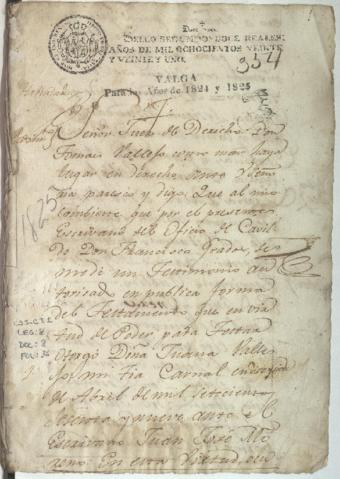 Dos rs.
SELLO SEGUNDO DOCE REALES:
AÑOS DE MIL OCHOCIENTOS VEINTE
Y VEINTE Y UNO.
354
VALGA
Para los Años de 1824 y 1825
Señor Juez de Derecho Don
Tomas Vallejo como mas haya
lugar en derecho ante
paresco y digo: Que al mio
combiene que por el presente
Escrivano del Oficio de Cavil
do Don Francisco Prados, se
me dé un Testimonio au
torisado en publica forma
del Testamento que en vir
tud de Poder para Testar
otorgó Doña Juana Valle
jo, mi Tia Carnal en
de Abril de mil setecient
sesenta y nueve ante el
Escrivano Juan José Mo
reno. En esta virtud
1825
LEG: 8
DOC: 8